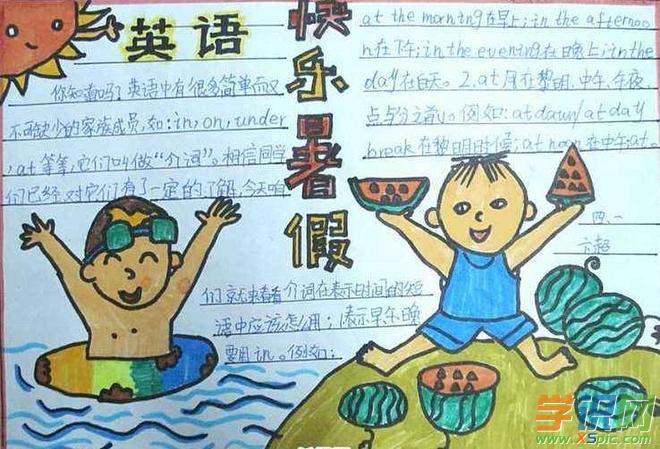 英语
快乐暑假
你知道吗？英语中有很多简单而又
不可缺少的家族成员，如：in，on，under
，at等等，它们叫做“介词”。相信同学
们已经对它们有了一定的了解，今天咱
们就来看看介词在表示时间的短
语中应该怎么用；表示早午晚
要用in。例如：
at the morning在早上；in the afternoo
n在下午；in the evening在晚上；in the
day在白天。2.at用在黎明、中午、午夜、
点与分之前。例如：at dawn/at day
break在黎明时候；at noon在中午；at。
四、一
学识网
www.xspic.com